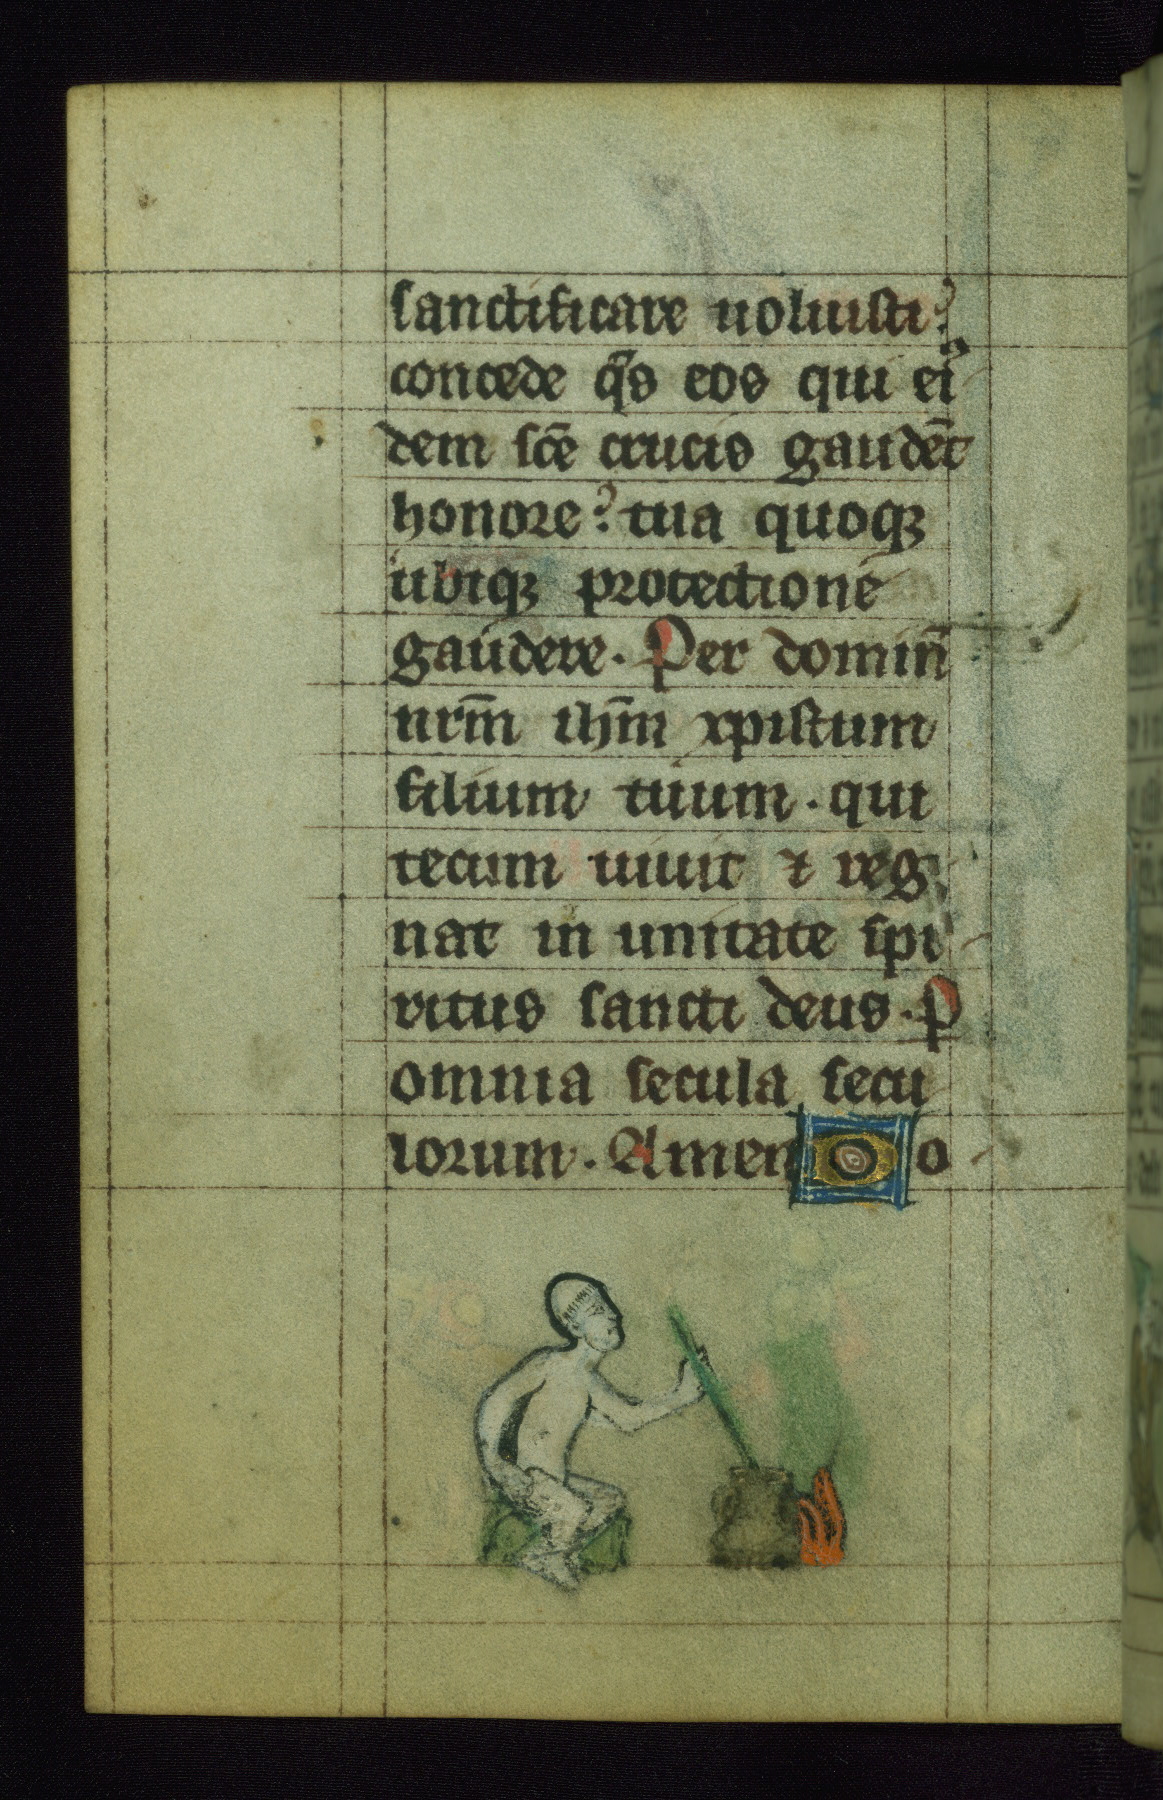 sanctificare uoluisti?
concede q̄s eos qui ei
dem sc̄e crucis gaudēt
honore? tua quoqꝫ
ubiqꝫ protectione
gaudere. Per domin̄
nrm̄ ihm̄ xpistum
filium tuum. qui
tecum uiuit ⁊ reg
nat in unitate spi
ritus sancti deus. P
omnia secula secu
lorum. Amen o